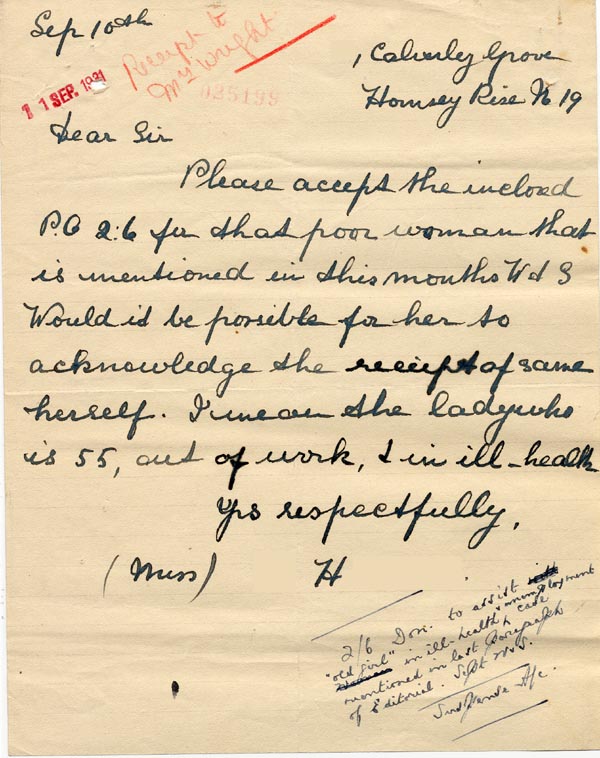 Sep 10th
Receipt to
Mrs Wright.
11 SEP. 1931
025199
1 Calverley Grove
Hornsey Rise N 19
Dear Sir
Please accept the inclosed
P.O 2:6 for that poor woman that
is mentioned in this months W & S
Would it be possible for her to
acknowledge the receipt of same
herself. I mean the lady who
is 55, out of work, & in ill-health
Yrs respectfully,
(Miss) H
2/6 Don. to assist
"old girl" in ill-health & unemployment
mentioned in last paragraph
case
of Editorial. Sept W.S.
A/c.